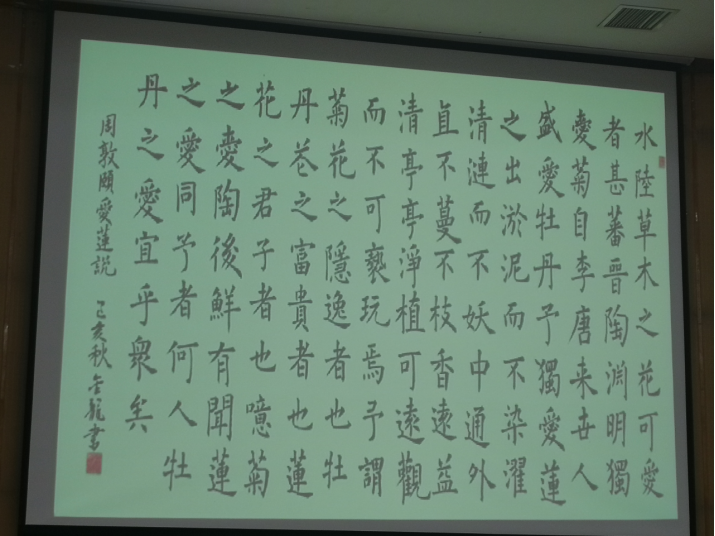 水陸草木之花可愛
者甚蕃晉陶淵明獨
愛菊自李唐来世人
盛愛牡丹予獨愛蓮
之出淤泥而不染濯
清漣而不妖中通外
直不蔓不枝香遠益
清亭亭淨植可遠觀
而不可褻玩焉予謂
菊花之隱逸者也牡
丹花之富貴者也蓮
花之君子者也噫菊
之愛陶後鮮有聞蓮
之愛同予者何人牡
丹之愛宜乎衆矣
周敦頤愛蓮說 己亥秋 金龍書